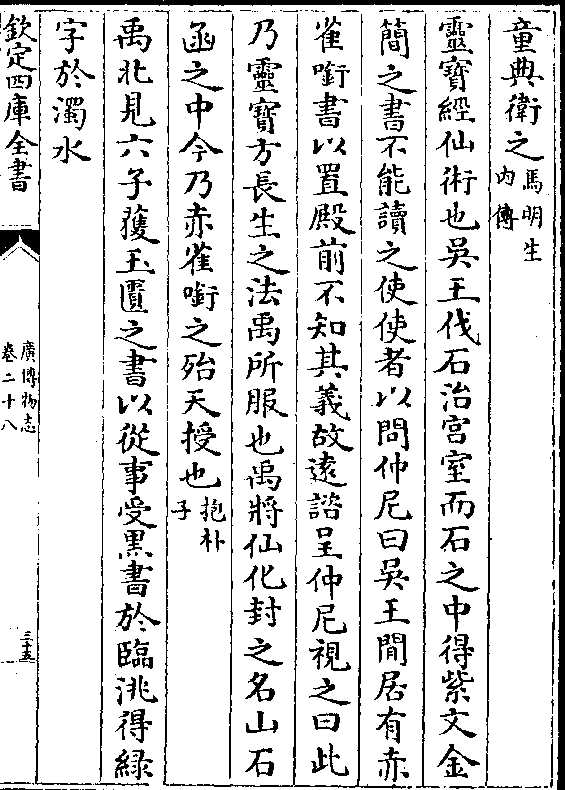 童典衛之馬明生内傳
靈寶經仙術也吳王伐石治宫室而石之中得紫文金
簡之書不能讀之使使者以問仲尼曰吳王閒居有赤
雀㘅書以置殿前不知其義故逺諮呈仲尼視之曰此
乃靈寶方長生之法禹所服也禹將仙化封之名山石
函之中今乃赤雀㘅之殆天授也抱朴子
禹北見六子獲玉匱之書以從事受黒書於臨洮得緑
字於濁水
欽定四庫全書
廣博物志
卷二十八
三十五